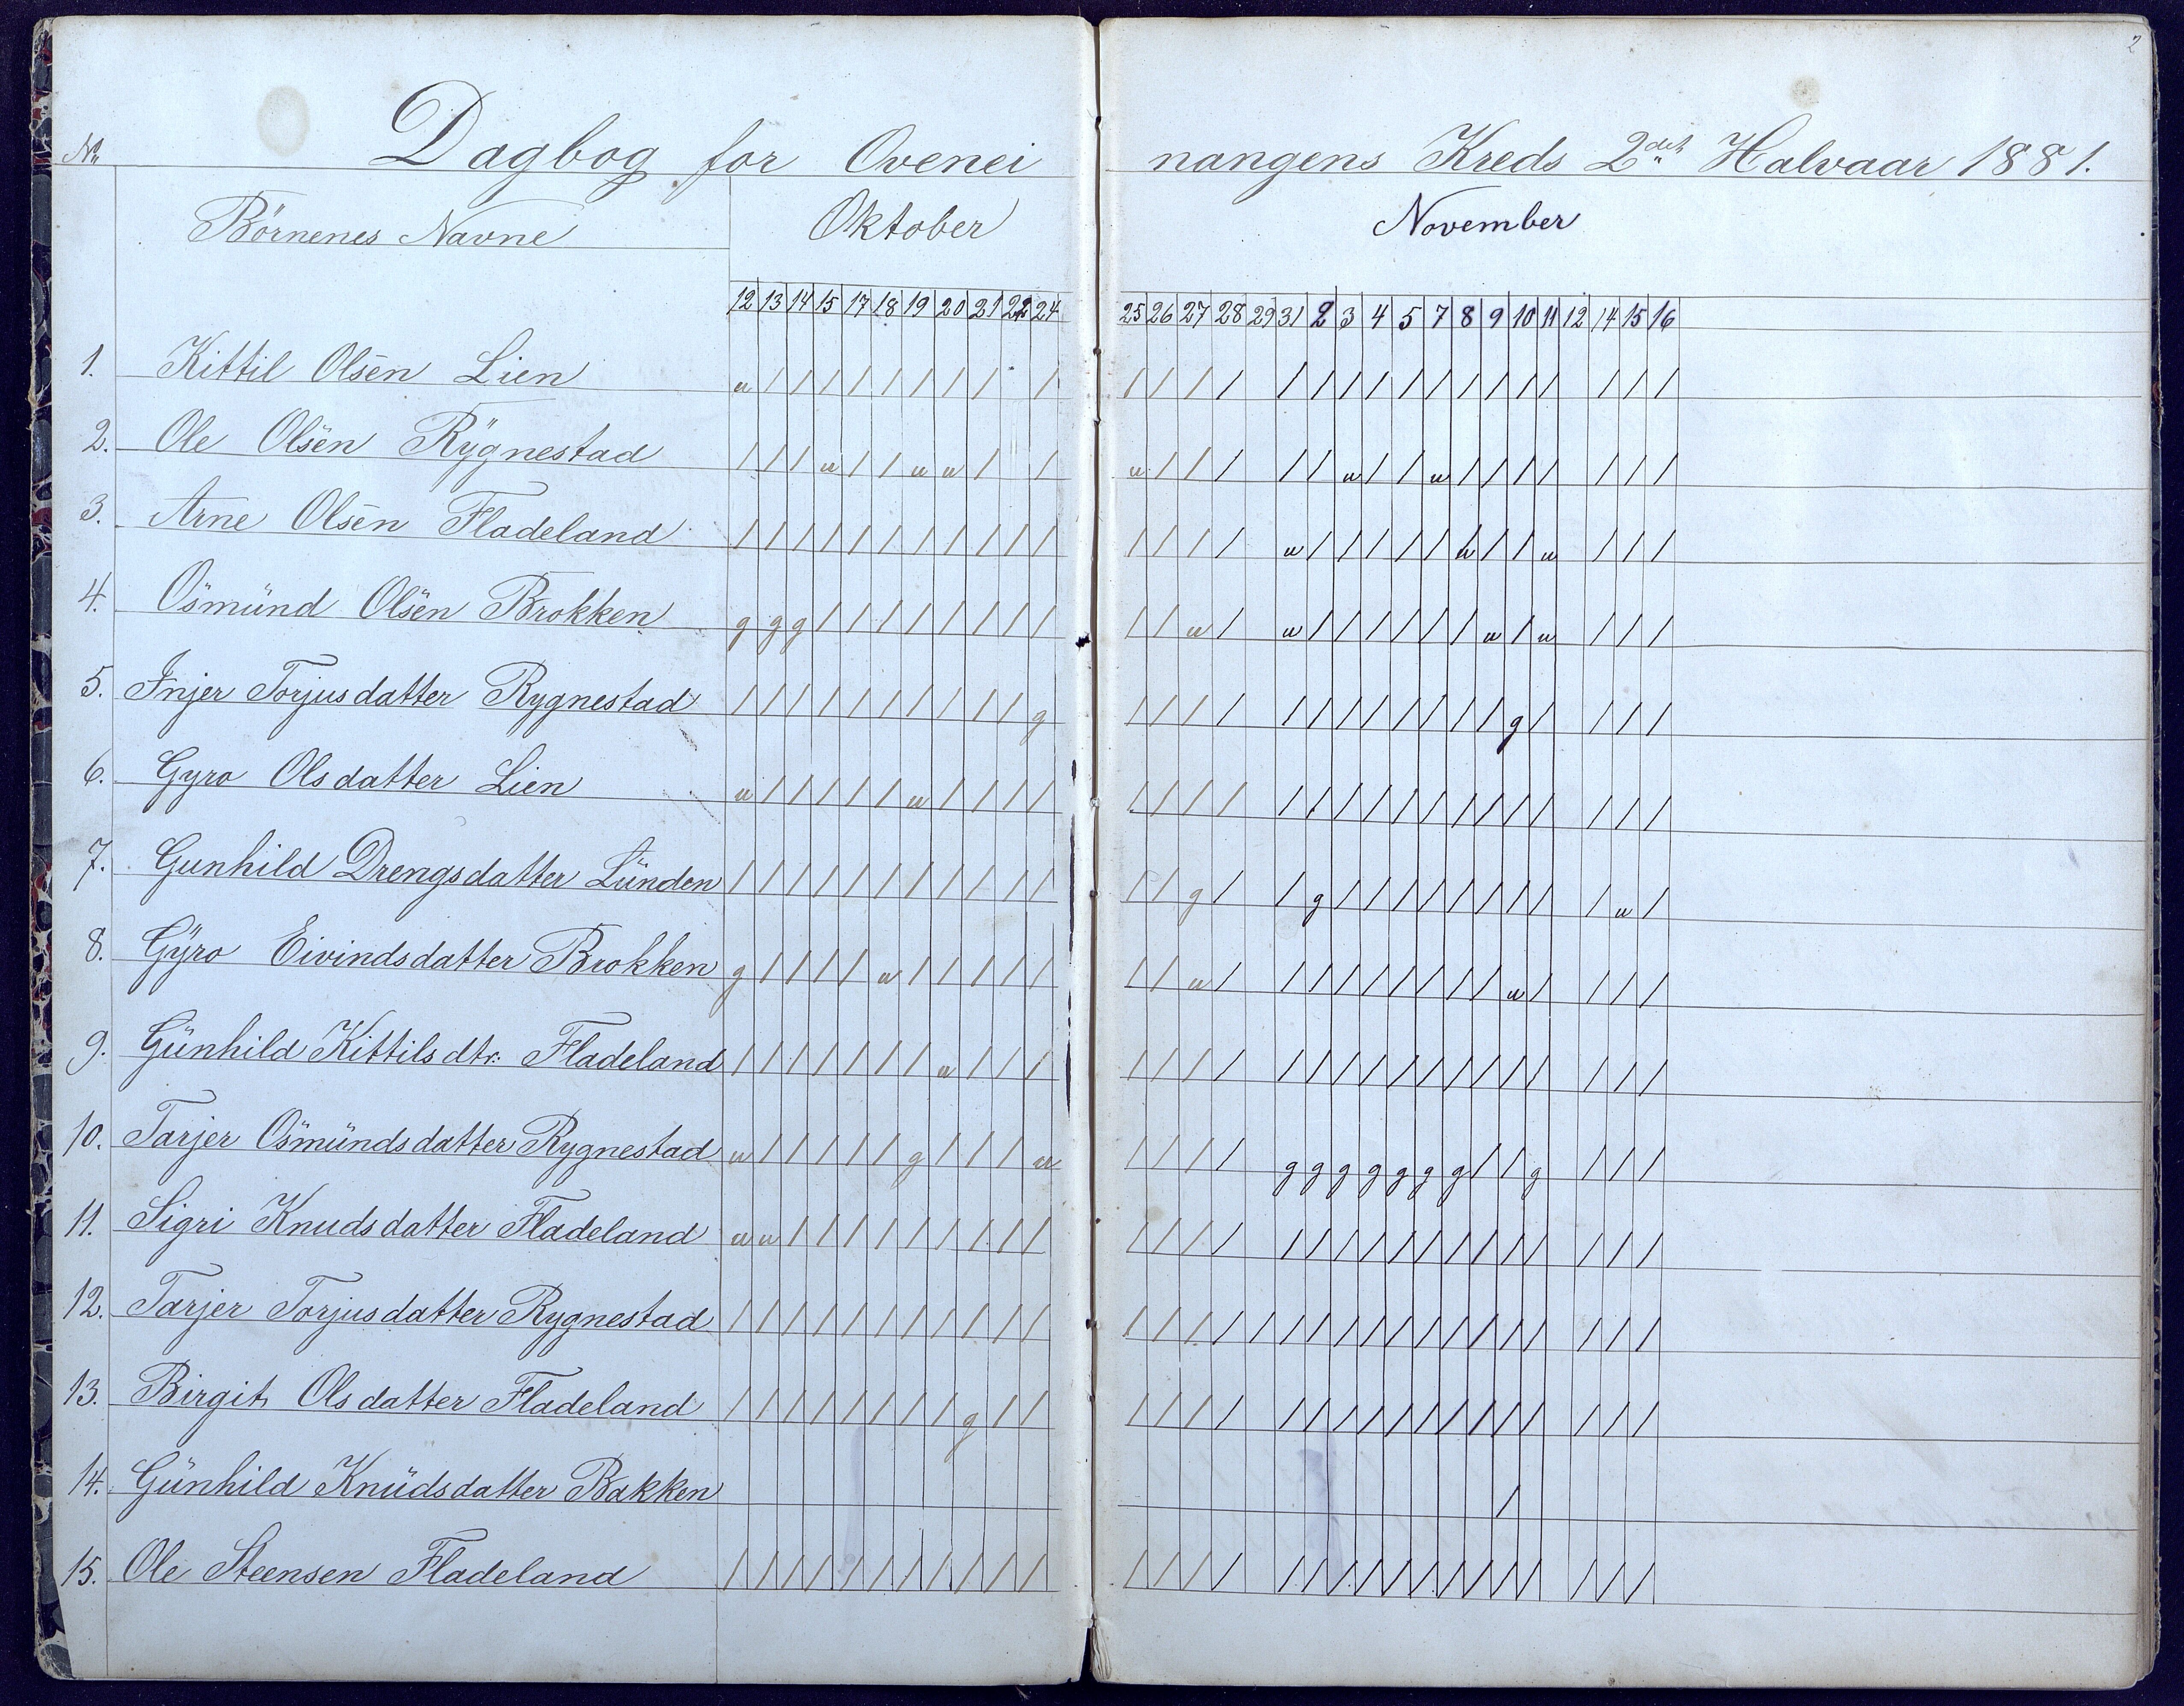 2
No
Dagbog for Ovenei nangens Kreds 2det Halvaar 1881.
Börnenes Navne Oktober November
12 13 14 15 17 18 19 20 21 22 24 25 26 27 28 29 31 2 3 4 5 7 8 9 10 11 12 14 15 16
1. Kittil Olsen Lien u / / / / / / / / / / / / / / / / / / / / / / / / / /
2. Ole Olsen Rygnestad / / / u / / u u / / u / / / / / u / / u / / / / / / /
3. Arne Olsen Fladeland / / / / / / / / / / / / / / / u / / / / / u / / u / / /
4. Osmund Olsen Brokken g g g / / / / / / / / / / u / u / / / / / / u / u / / /
5. Injer Torjusdatter Rygnestad / / / / / / / / / / g / / / / / / / / / / / / g / / / /
6. Gyro Olsdatter Lien u / / / / / u / / / / / / / / / / / / / / / / / / / / /
7. Gunhild Drengsdatter Lunden / / / / / / / / / / / / / g / / g / / / / / / / / / u /
8. Gyro Eivindsdatter Brokken g / / / / u / / / / / / / u / / / / / / / / / u / / / /
9. Gunhild Kittilsdtr: Fladeland / / / / / / / u / / / / / / / / / / / / / / / / / / / /
10. Tarjer Osmundsdatter Rygnestad u / / / / / g / / / u / / / / g g g g g g g / / g / / /
11. Sigri Knudsdatter Fladeland u u / / / / / / / / / / / / / / / / / / / / / / / / / /
12. Tarjer Torjusdatter Rygnestad / / / / / / / / / / / / / / / / / / / / / / / / / / / / /
13. Birgit Olsdatter Fladeland / / / / / / / / g / / / / / / / / / / / / / / / / / / /
14. Gunhild Knudsdatter Bakken /
15. Ole Steensen Fladeland / / / / / / / / / / / / / / / / / / / / / / / / / / / /